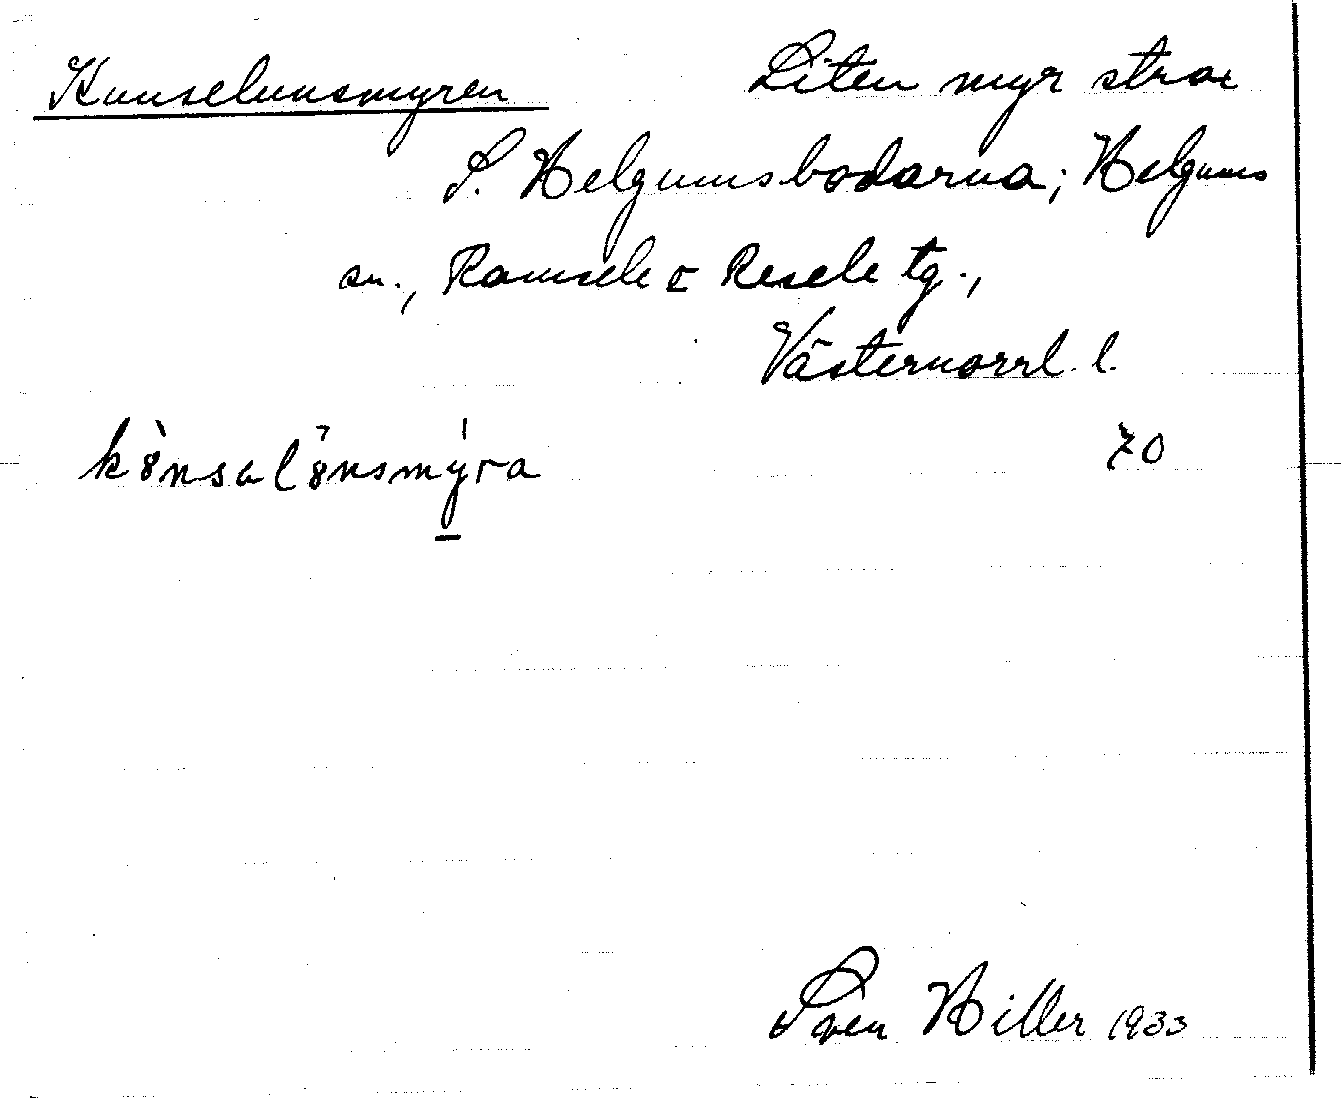 Kunselunsmyren Liten myr strax
S. Helgumsbodarna; Helgums
sn., Ramsele o Resele tg.,
Västernorrl. l.
kȣ̀nsalȣnsmýra 70
Sven Hiller 1933